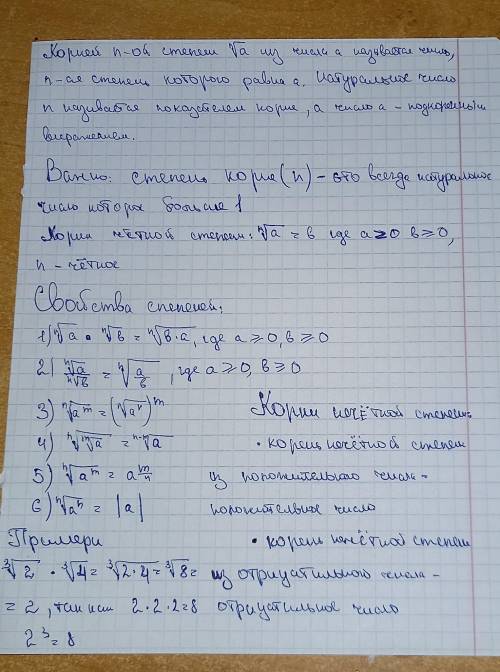 Корней n-ой степени √a из числа a называется число,
n-ая степень которого равна a. Натуральное число
n называется показателем корня, а число a - подкоренным
выражением.
Важно: степень корня (n) - это всегда натуральное
число которое больше 1
Корни чётной степени: ⁿ√a = b где a≥0 b≥0,
n - чётное
Свойства степеней:
1) ⁿ√a • ⁿ√b = ⁿ√b·a, где a ≥ 0, b ≥ 0
2) ⁿ√a/ⁿ√b = ⁿ√a/b, где a ≥ 0, b ≥ 0
3) ⁿ√aᵐ = (ⁿ√a)ᵐ
4) ⁿ√ᵐ√a = ⁿ·ᵐ√a
5) ⁿ√aᵐ = a m/n
6) ⁿ√aⁿ = |a|
Корни нечётной степени
• корень нечётной степени
из положительного числа -
положительное число
• корень нечётной степени
из отрицательного числа -
отрицательное число
Примеры
³√2 • ³√4 = ³√2·4 = ³√8 =
= 2, так как 2·2·2=8
2³=8